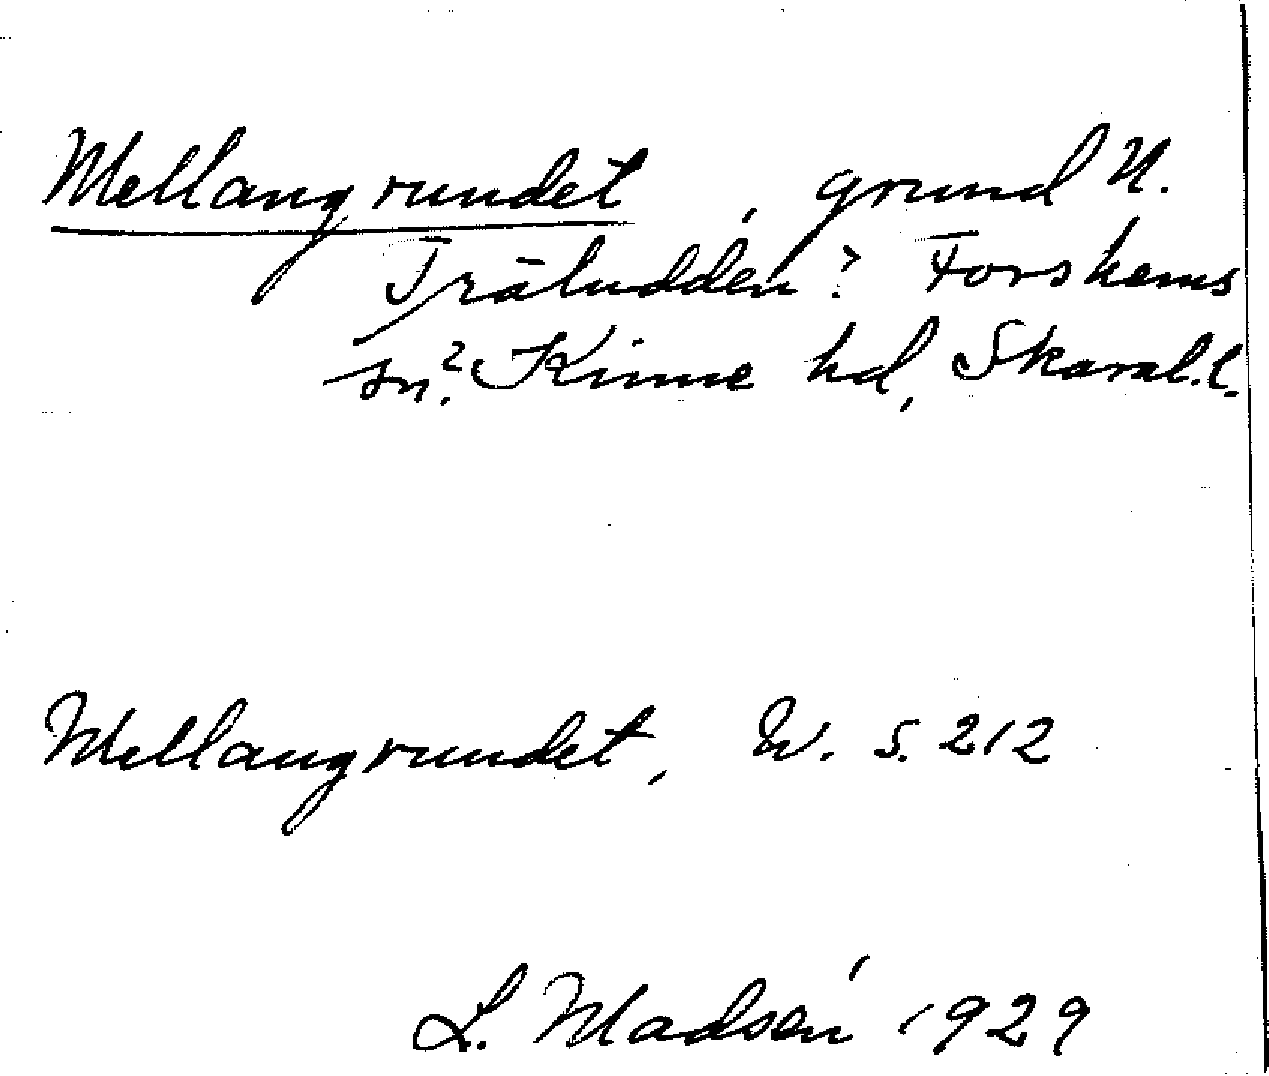 Mellangrundet, grund N.
Träludden? Forshems
sn? Kinne hd, Skarab.l.
Mellangrundet, W. s. 212
L. Madsén 1929